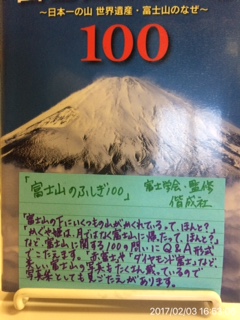 ～日本一の山 世界遺産・富士山のなぜ～
100
「富士山のふしぎ100」
富士学会・監修
偕成社
「富士山の下にいくつもの山がかくれているって、ほんと？」
「かぐや姫は、月ではなく富士山に帰ったって、ほんと？」
など、富士山に関する100の問いにQ&A形式
でこたえます。赤富士やダイヤモンド富士など、
美しい富士山の写真もたくさん載っているので
写真集としても見ごたえがあります。
2017/02/03 16:5